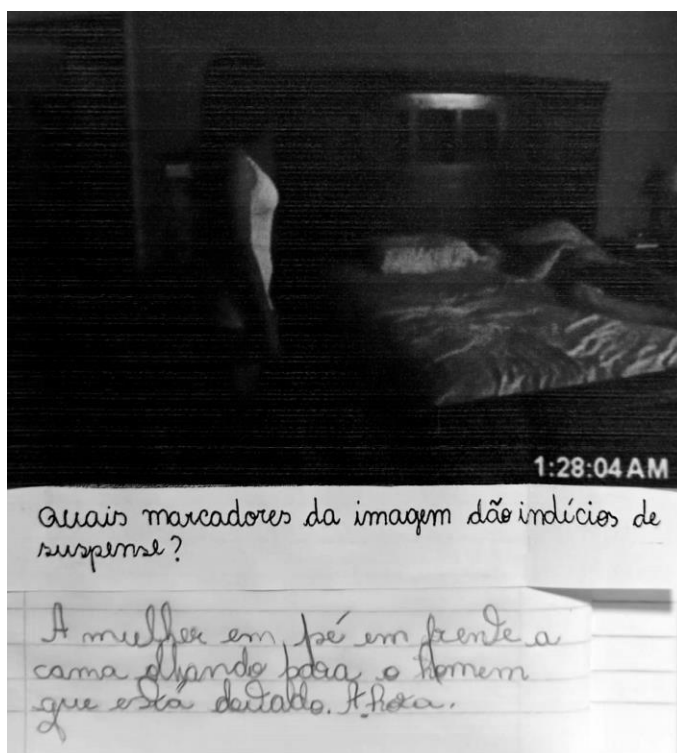 1:28:04 AM
Quais marcadores da imagem dão indícios de
suspense?
A mulher em pé em frente a
cama olhando para o homem
que está deitado. A hora.